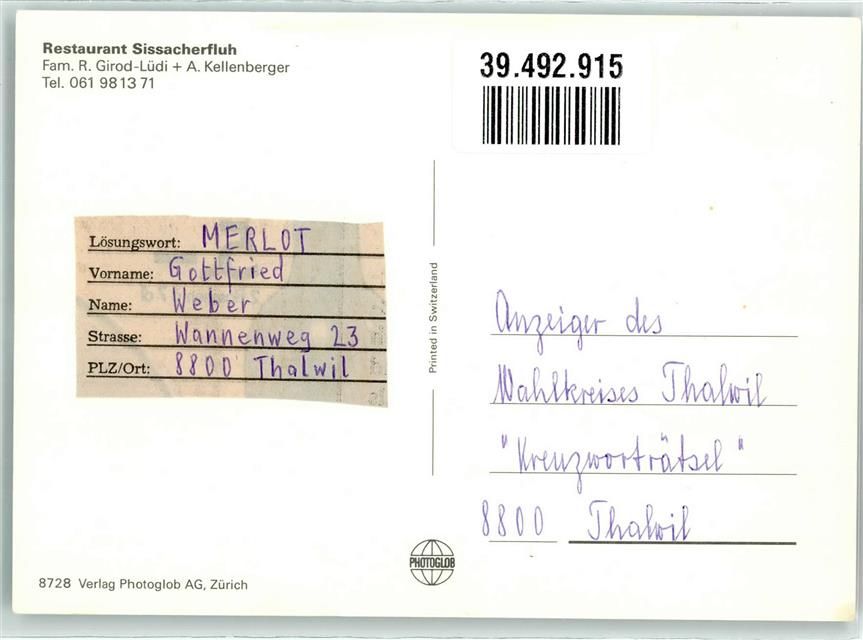 Restaurant Sissacherfluh
Fam. R. Girod-Lüdi + A. Kellenberger
Tel. 061 98 13 71
39.492.915
Lösungswort: MERLOT
Vorname: Gottfried
Name: Weber
Strasse: Wannenweg 23
PLZ/Ort: 8800 Thalwil
Printed in Switzerland
Anzeiger des
Wahlkreises Thalwil
"Kreuzworträtsel"
8800 Thalwil
PHOTOGLOB
8728 Verlag Photoglob AG, Zürich